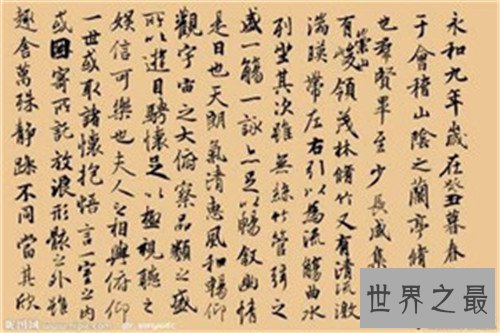 永和九年歲在癸丑暮春
于會稽山陰之蘭亭脩
也群賢畢至少長咸集
有崇山峻領茂林脩竹又有清流激
湍暎帶左右引以為流觴曲水
列坐其次雖無絲竹管弦之
盛一觴一詠亦足以暢敘幽情
是日也天朗氣清惠風和暢仰
觀宇宙之大俯察品類之盛
所以遊目騁懷足以極視聽之
娛信可樂也夫人之相與俯仰
一世或取諸懷抱悟言一室之內
或因寄所託放浪形骸之外雖
趣舍萬殊靜躁不同當其欣
世界之最